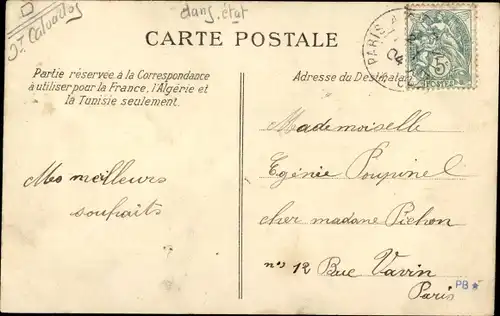 dans.état
J⁵ Calvados
CARTE POSTALE
PARIS
04
5
POSTES
Partie réservée à la Correspondance
à utiliser pour la France, l'Algérie et
la Tunisie seulement.
Adresse du Destinata
Mes meilleurs
souhaits
Mademoiselle
Egénie Poupinel
cher madame Pichon
nos 12 Rue Vavin
Paris
PB